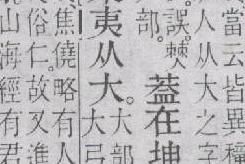 當云皆異
人从大之字
誤。僰
部。
蓋在坤
夷从大。
大部
大弓
焦僥略有人
俗仁。故又進
山海經有君